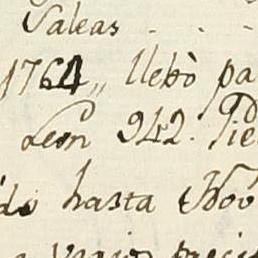 Saleas . . .
1764,, llebò pa
Lem 942. Pie
do hasta Nov